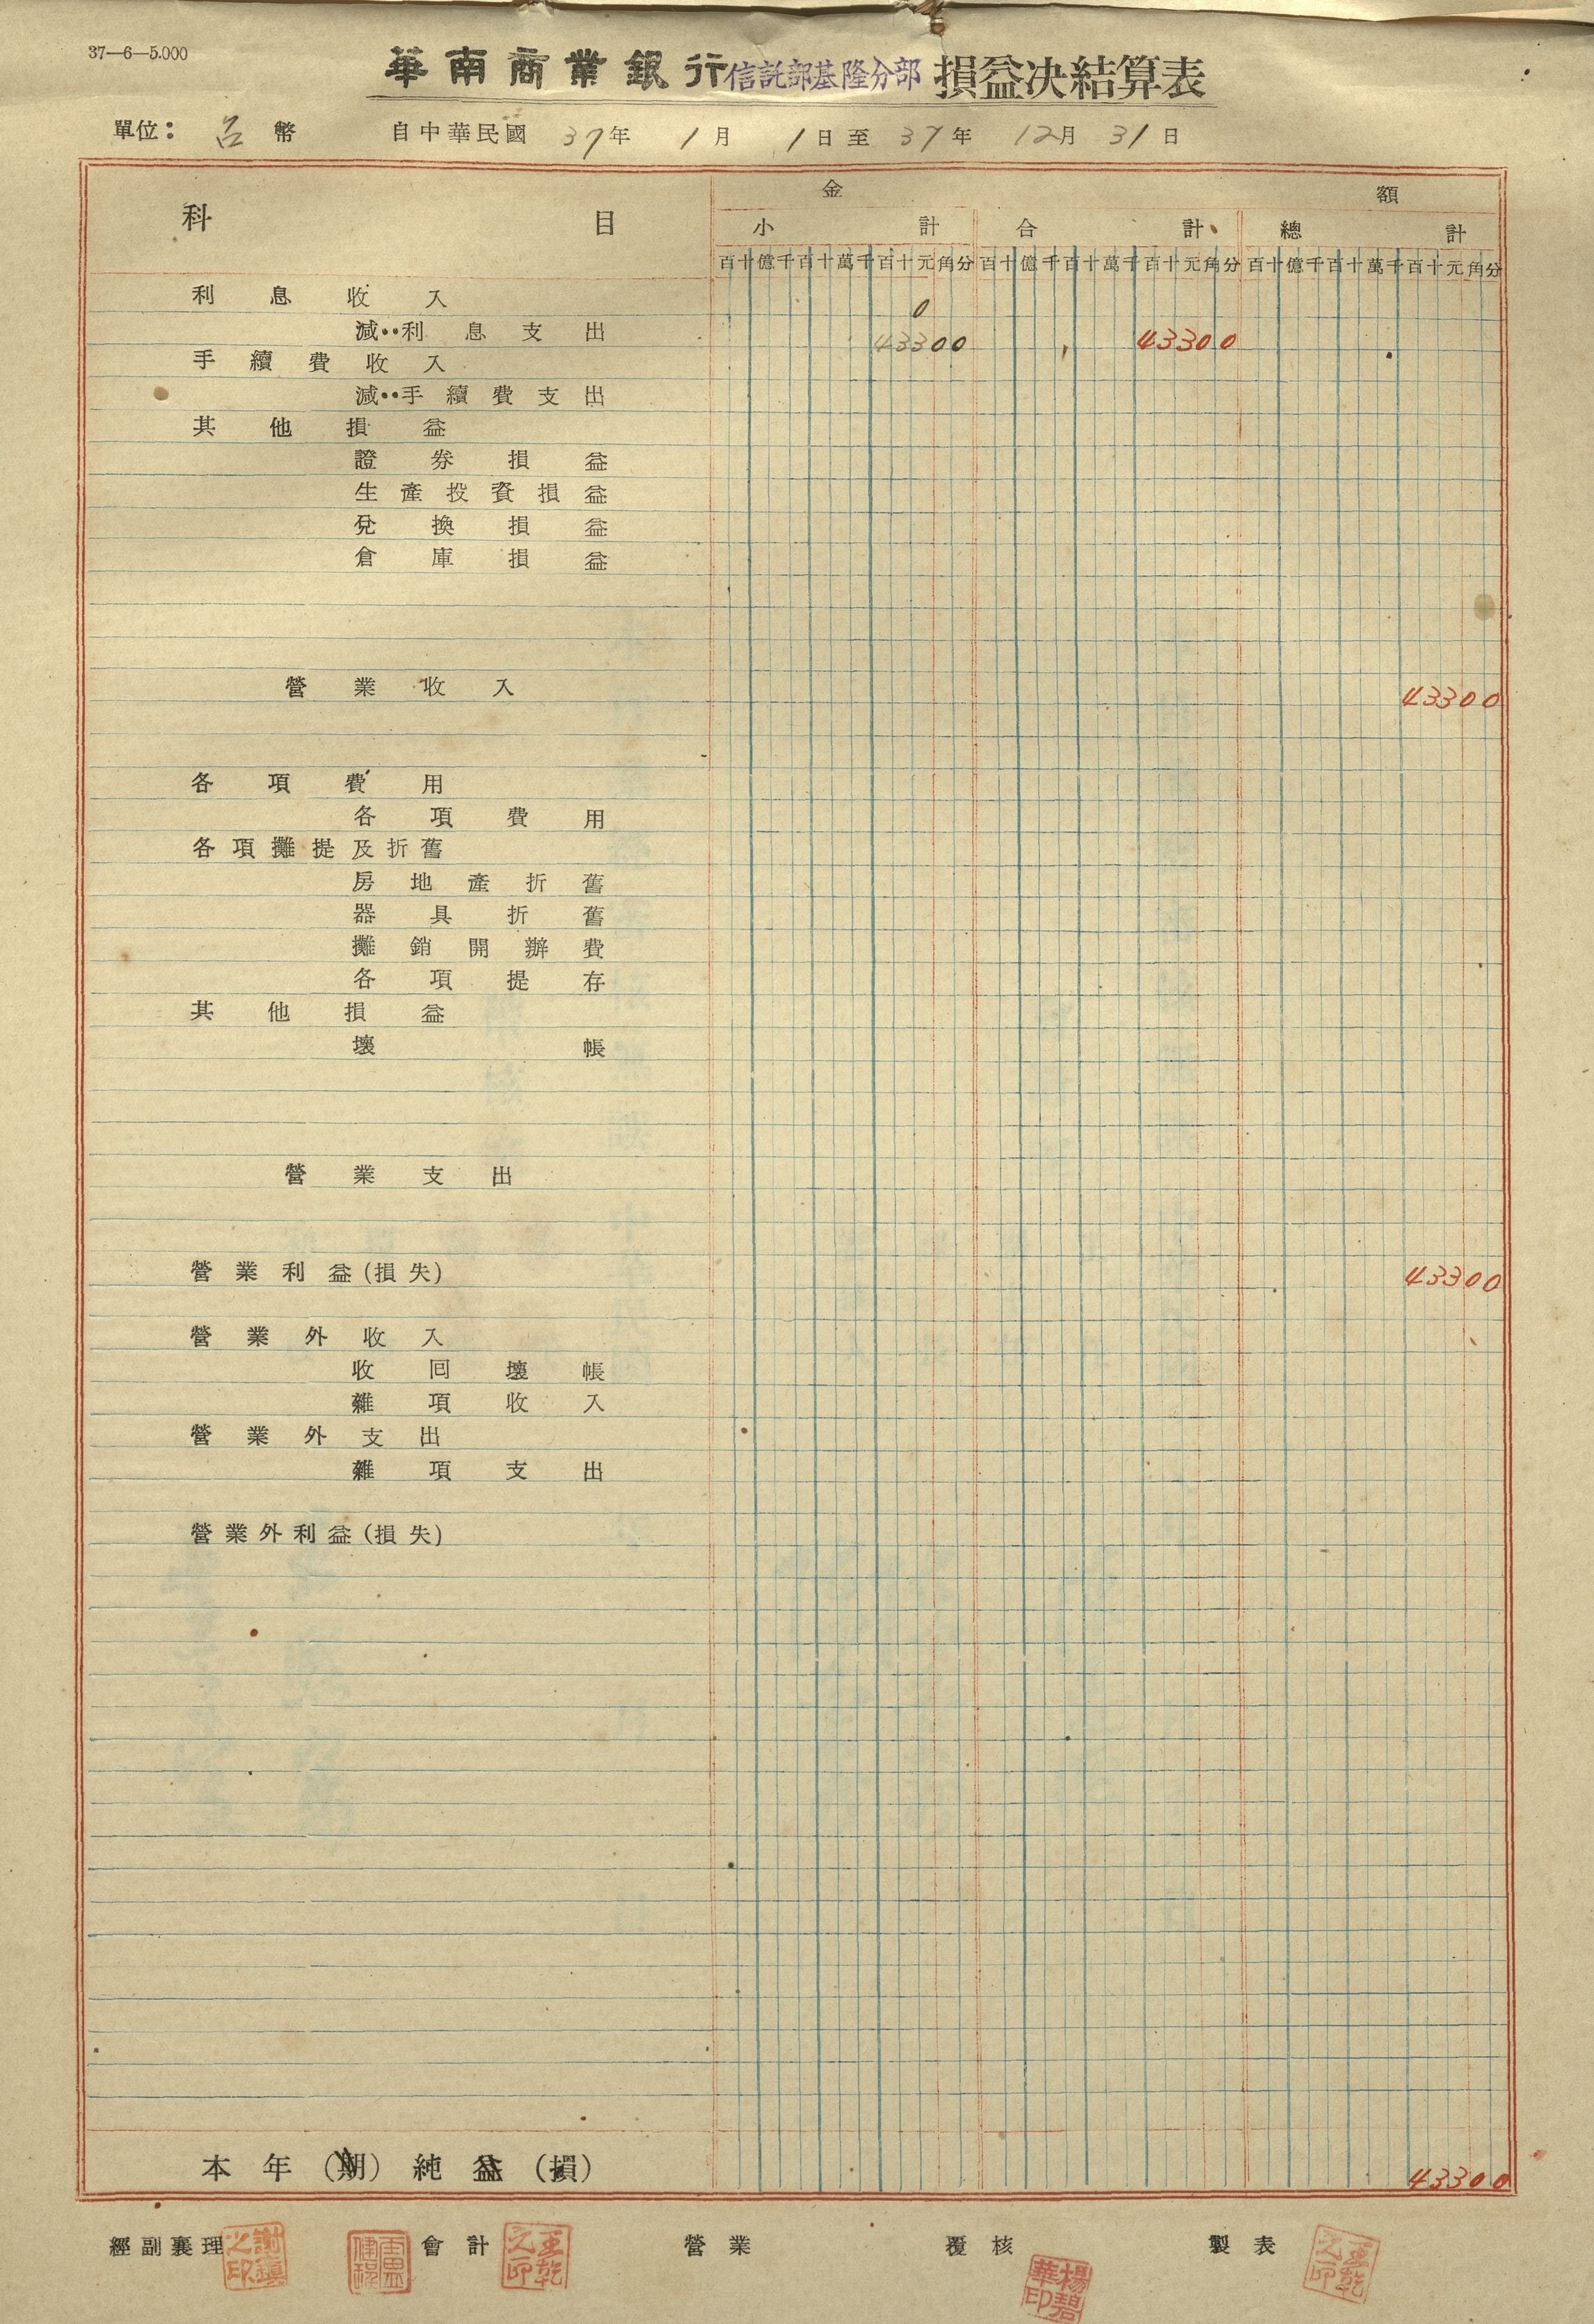 37—6—5.000
華南商業銀行信託部基隆分部 損益決結算表
單位：台幣 自中華民國 37年 1月 1日至 37年 12月 31日
科目 金額
小計 合計 總計
百十億千百十萬千百十元角分 百十億千百十萬千百十元角分 百十億千百十萬千百十元角分
利息收入 0
減：利息支出 43300 43300
手續費收入
減：手續費支出
其他損益
證券損益
生產投資損益
兌換損益
倉庫損益
營業收入 43300
各項費用
各項費用
各項攤提及折舊
房地產折舊
器具折舊
攤銷開辦費
各項提存
其他損益
壞帳
營業支出
營業利益(損失) 43300
營業外收入
收回壞帳
雜項收入
營業外支出
雜項支出
營業外利益(損失)
本年(期)純益(損) 43300
經副襄理 會計 王乾之印 營業 覆核 楊碧華印 製表 王乾之印